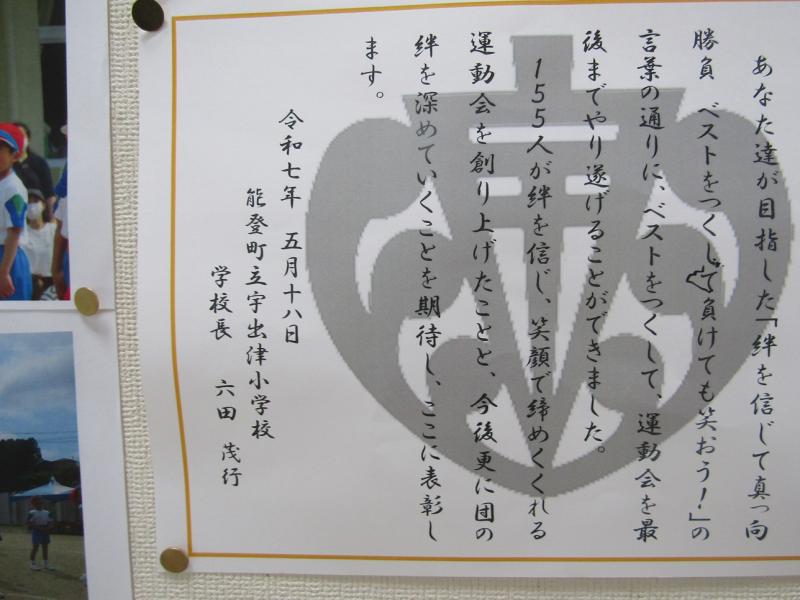 あなた達が目指した「絆を信じて真っ向
勝負 ベストをつくし 負けても笑おう！」の
言葉の通りに、ベストをつくして、運動会を最
後までやり遂げることができました。
155人が絆を信じ、笑顔で締めくくれる
運動会を創り上げたことと、今後更に団の
絆を深めていくことを期待し、ここに表彰し
ます。
令和七年 五月十八日
能登町立宇出津小学校
学校長 六田 茂行